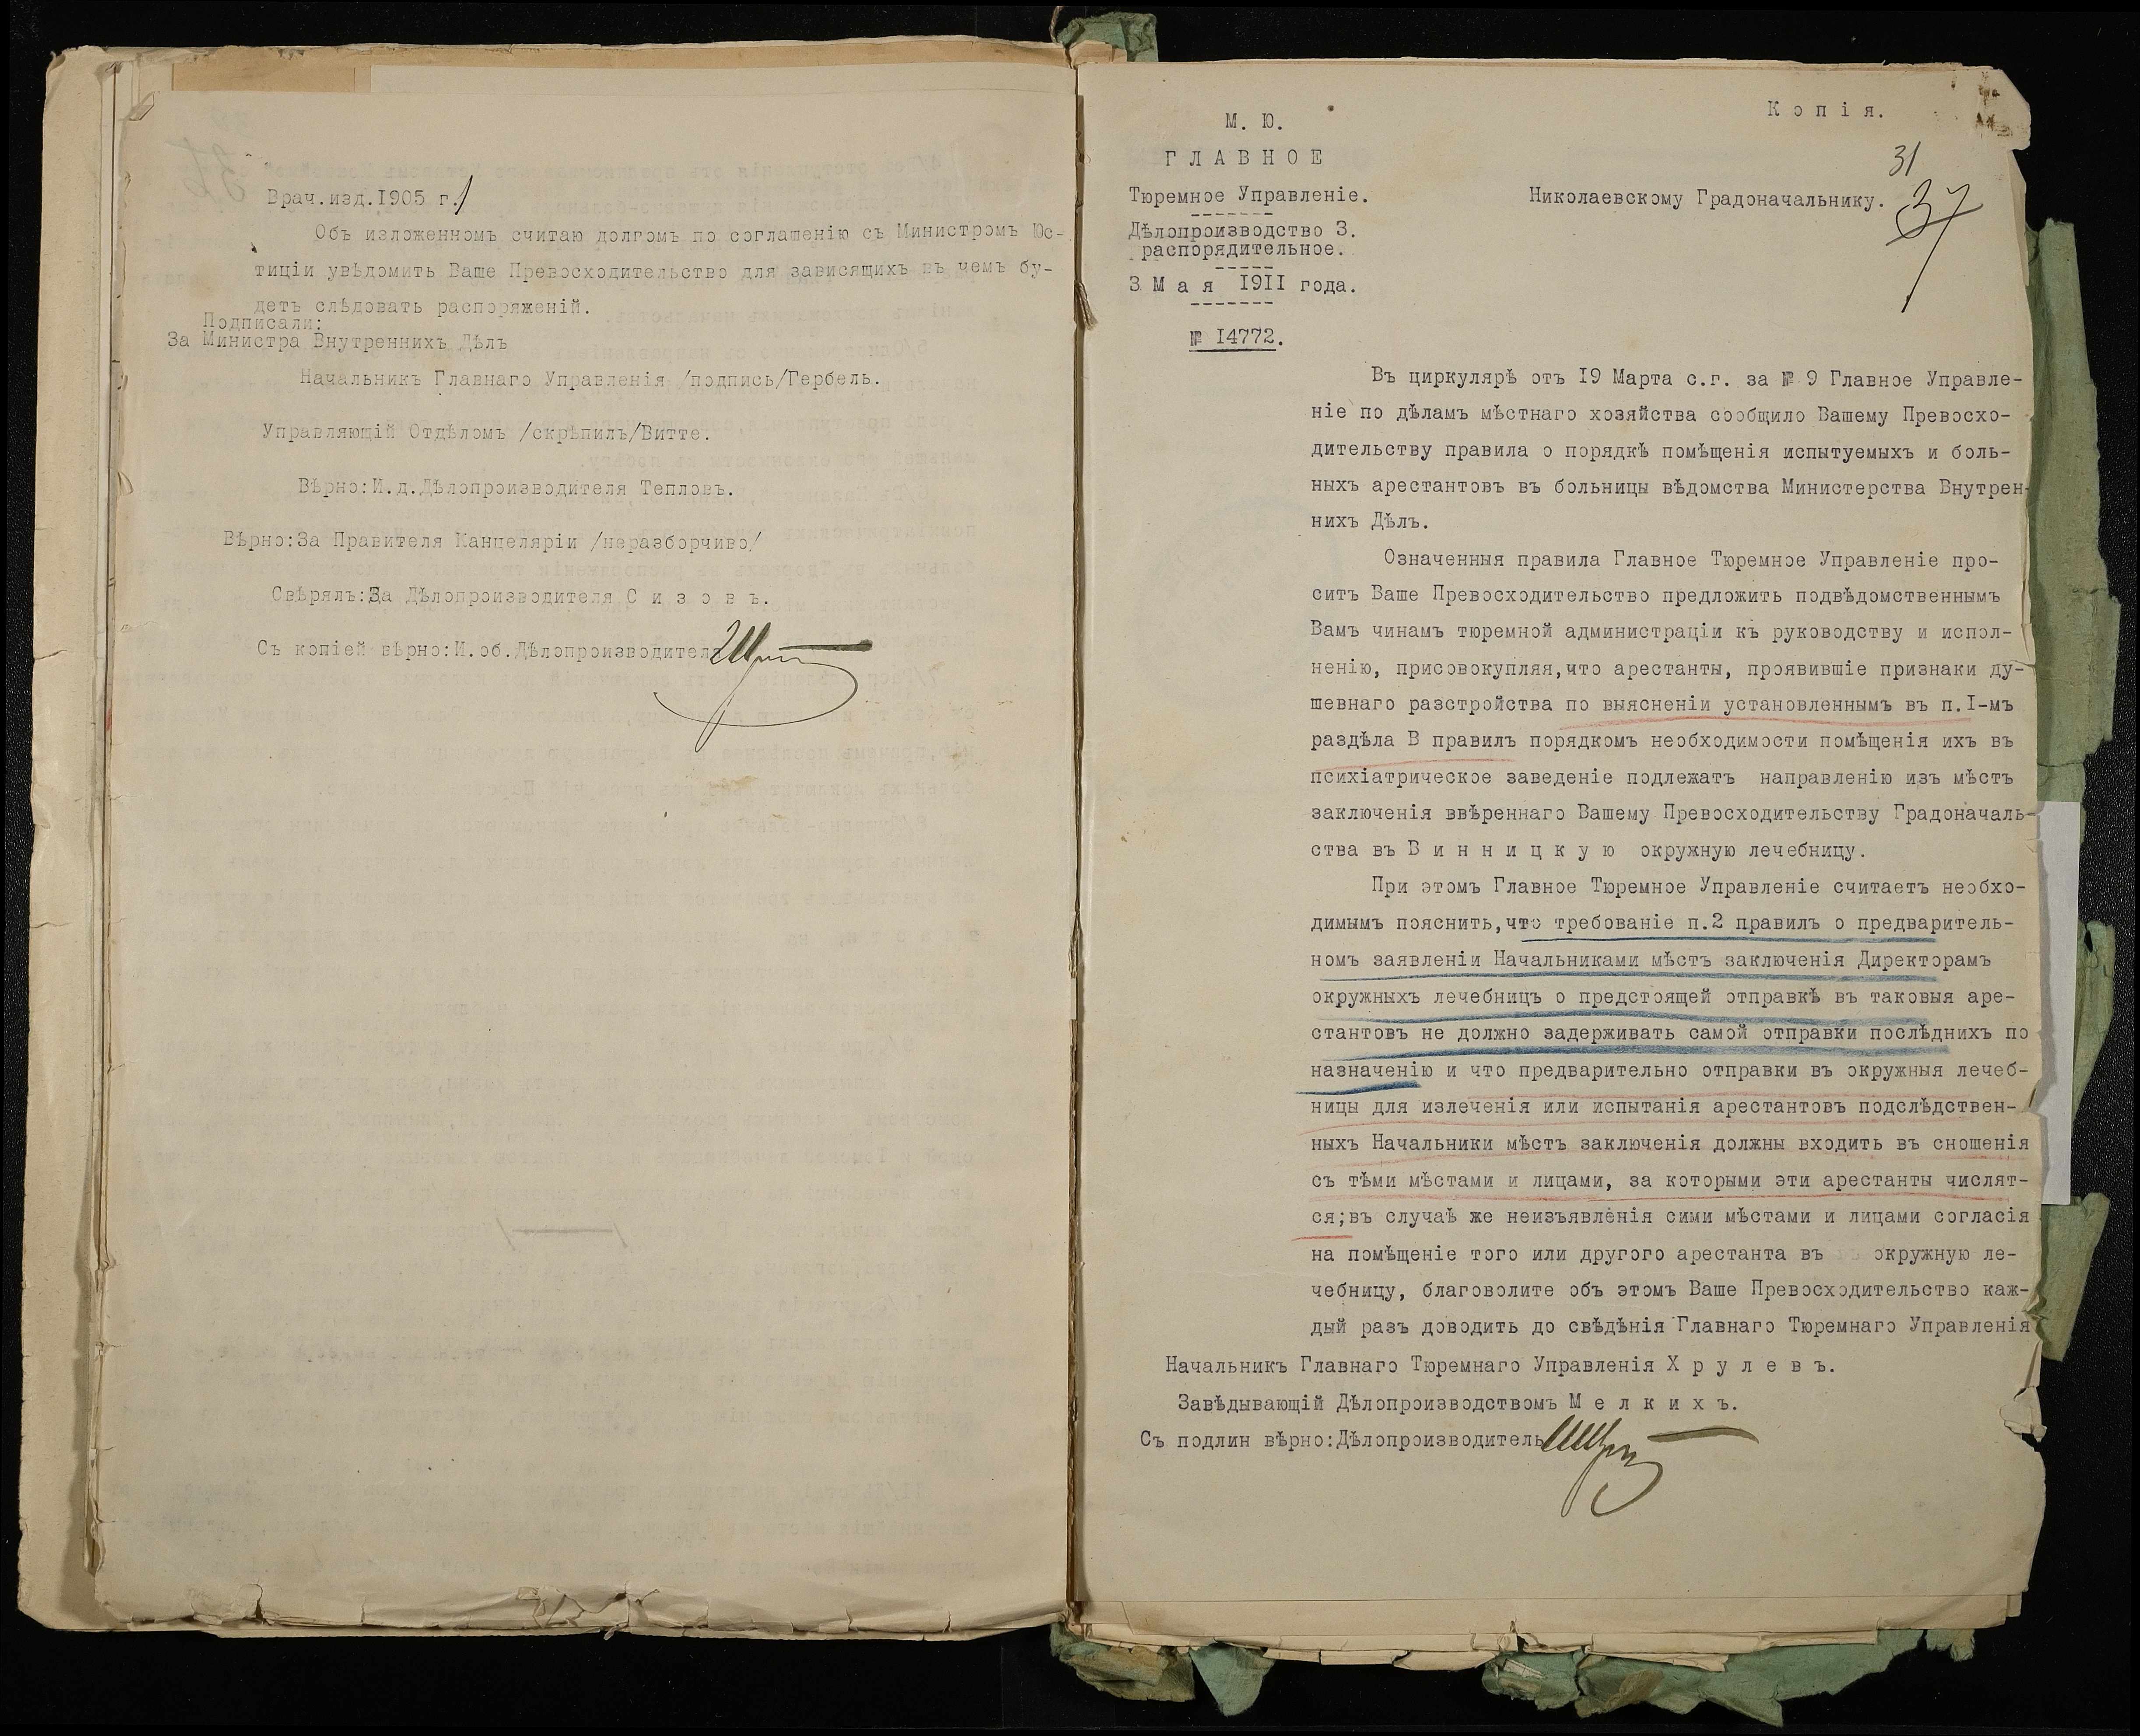 Врач.изд.I905 г./
Объ изложенномъ считаю долгомъ по соглашенію съ Министромъ Юс-
тиціи увѣдомить Ваше Превосходительство для зависящихъ въ чемъ бу-
детъ слѣдовать распоряженій.
Подписали:
За Министра Внутреннихъ Дѣлъ
Начальникъ Главнаго Управленія /подпись/Гербель.
Управляющій Отдѣломъ /скрѣпилъ/Витте.
Вѣрно:И.д.Дѣлопроизводителя Тепловъ.
Вѣрно:За Правителя Канцеляріи /неразборчиво/
Свѣрялъ:За Дѣлопроизводителя С и з о в ъ.
Съ копіей вѣрно:И.об.Дѣлопроизводителя
К о п і я.
31
37
М. Ю.
Г Л А В Н О Е
Тюремное Управленіе.
Николаевскому Градоначальнику.
Дѣлопроизводство 3.
распорядительное.
3 М а я I9II года.
№ I4772.
Въ циркулярѣ отъ I9 Марта с.г. за № 9 Главное Управле-
ніе по дѣламъ мѣстнаго хозяйства сообщило Вашему Превосхо-
дительству правила о порядкѣ помѣщенія испытуемыхъ и боль-
ныхъ арестантовъ въ больницы вѣдомства Министерства Внутрен-
нихъ Дѣлъ.
Означенныя правила Главное Тюремное Управленіе про-
ситъ Ваше Превосходительство предложить подвѣдомственнымъ
Вамъ чинамъ тюремной администраціи къ руководству и испол-
ненію, присовокупляя,что арестанты, проявившіе признаки ду-
шевнаго разстройства по выясненіи установленнымъ въ п.I-мъ
раздѣла В правилъ порядкомъ необходимости помѣщенія ихъ въ
психіатрическое заведеніе подлежатъ направленію изъ мѣстъ
заключенія ввѣреннаго Вашему Превосходительству Градоначаль-
ства въ В и н н и ц к у ю окружную лечебницу.
При этомъ Главное Тюремное Управленіе считаетъ необхо-
димымъ пояснить,что требованіе п.2 правилъ о предваритель-
номъ заявленіи Начальниками мѣстъ заключенія Директорамъ
окружныхъ лечебницъ о предстоящей отправкѣ въ таковыя аре-
стантовъ не должно задерживать самой отправки послѣднихъ по
назначенію и что предварительно отправки въ окружныя лечеб-
ницы для излеченія или испытанія арестантовъ подслѣдствен-
ныхъ Начальники мѣстъ заключенія должны входить въ сношенія
съ тѣми мѣстами и лицами, за которыми эти арестанты числят-
ся;въ случаѣ же неизъявленія сими мѣстами и лицами согласія
на помѣщеніе того или другого арестанта въ окружную ле-
чебницу, благоволите объ этомъ Ваше Превосходительство каж-
дый разъ доводить до свѣдѣнія Главнаго Тюремнаго Управленія
Начальникъ Главнаго Тюремнаго Управленія Х р у л е в ъ.
Завѣдывающій Дѣлопроизводствомъ М е л к и х ъ.
Съ подлин вѣрно:Дѣлопроизводитель